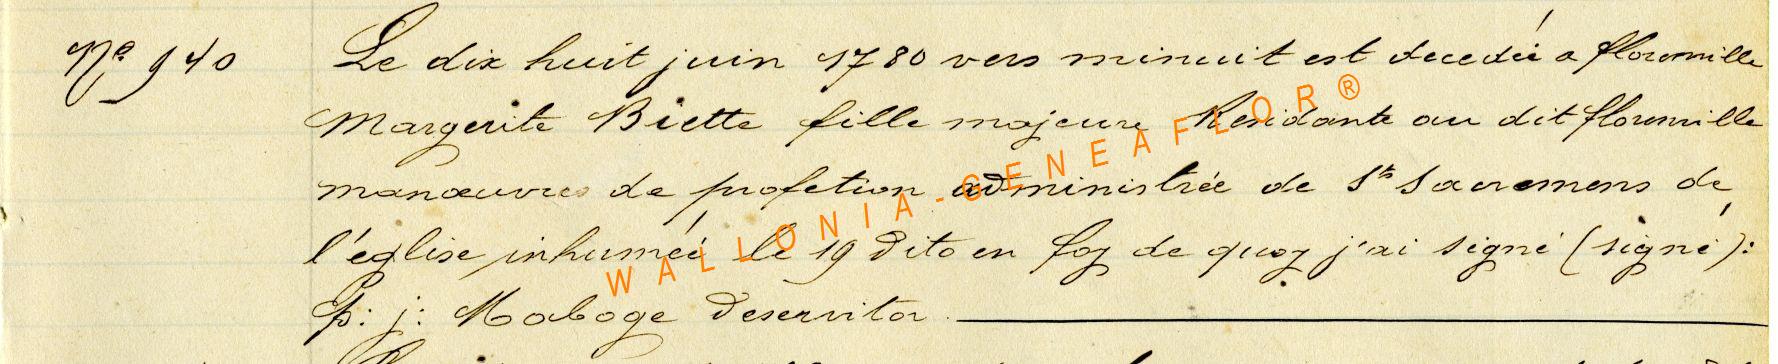 Nº 940 Le dix huit juin 1780 vers minuit est decedeé a florenville
Margerite Biette fille majeure Residante au dit florenville
manœuvres de profetion administrée de Sts Sacremens de
l'église inhumeé le 19 dito en foy de quoy j'ai signé (signé):
p: j: Maboge Deservitor
WALLONIA-GENEAFLOR®